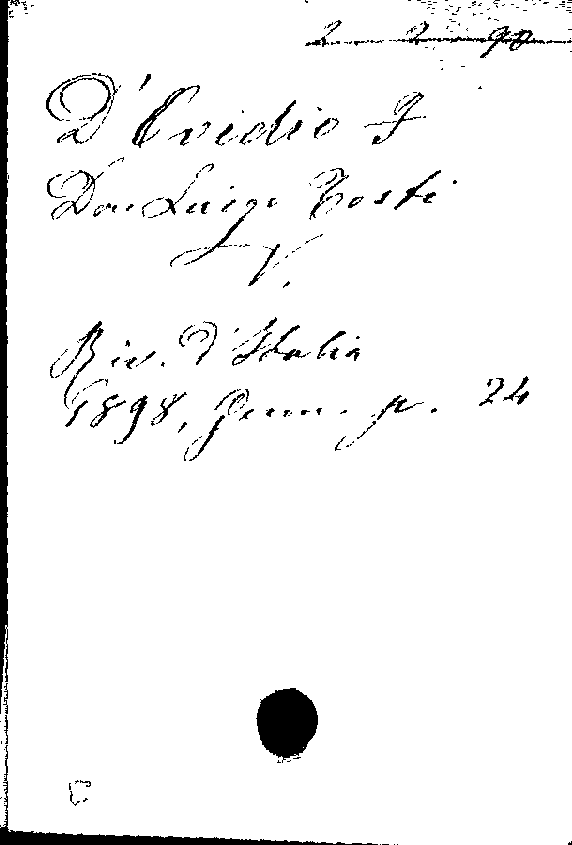 2 2 98
D'Ovidio F
Don Luigi Tosti
V.
Riv. d'Italia
1898, Genn. p. 24